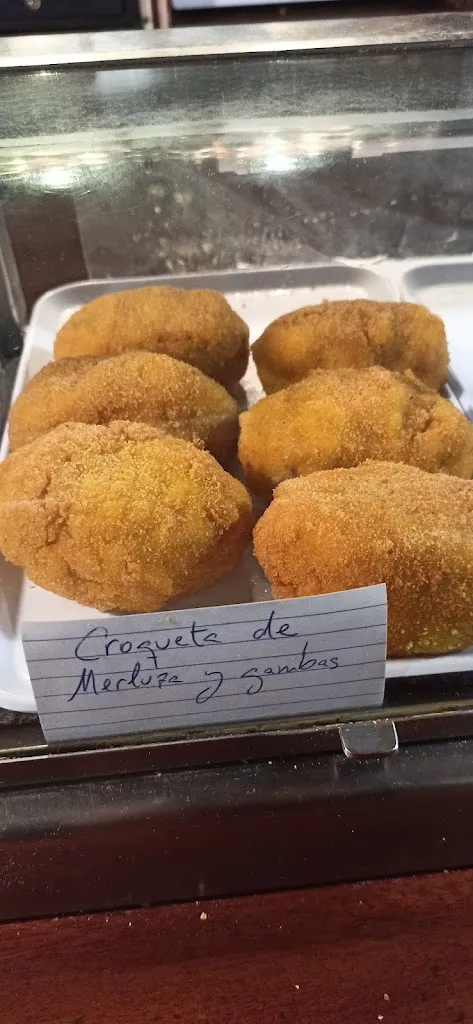 Croqueta de
Merluza y gambas